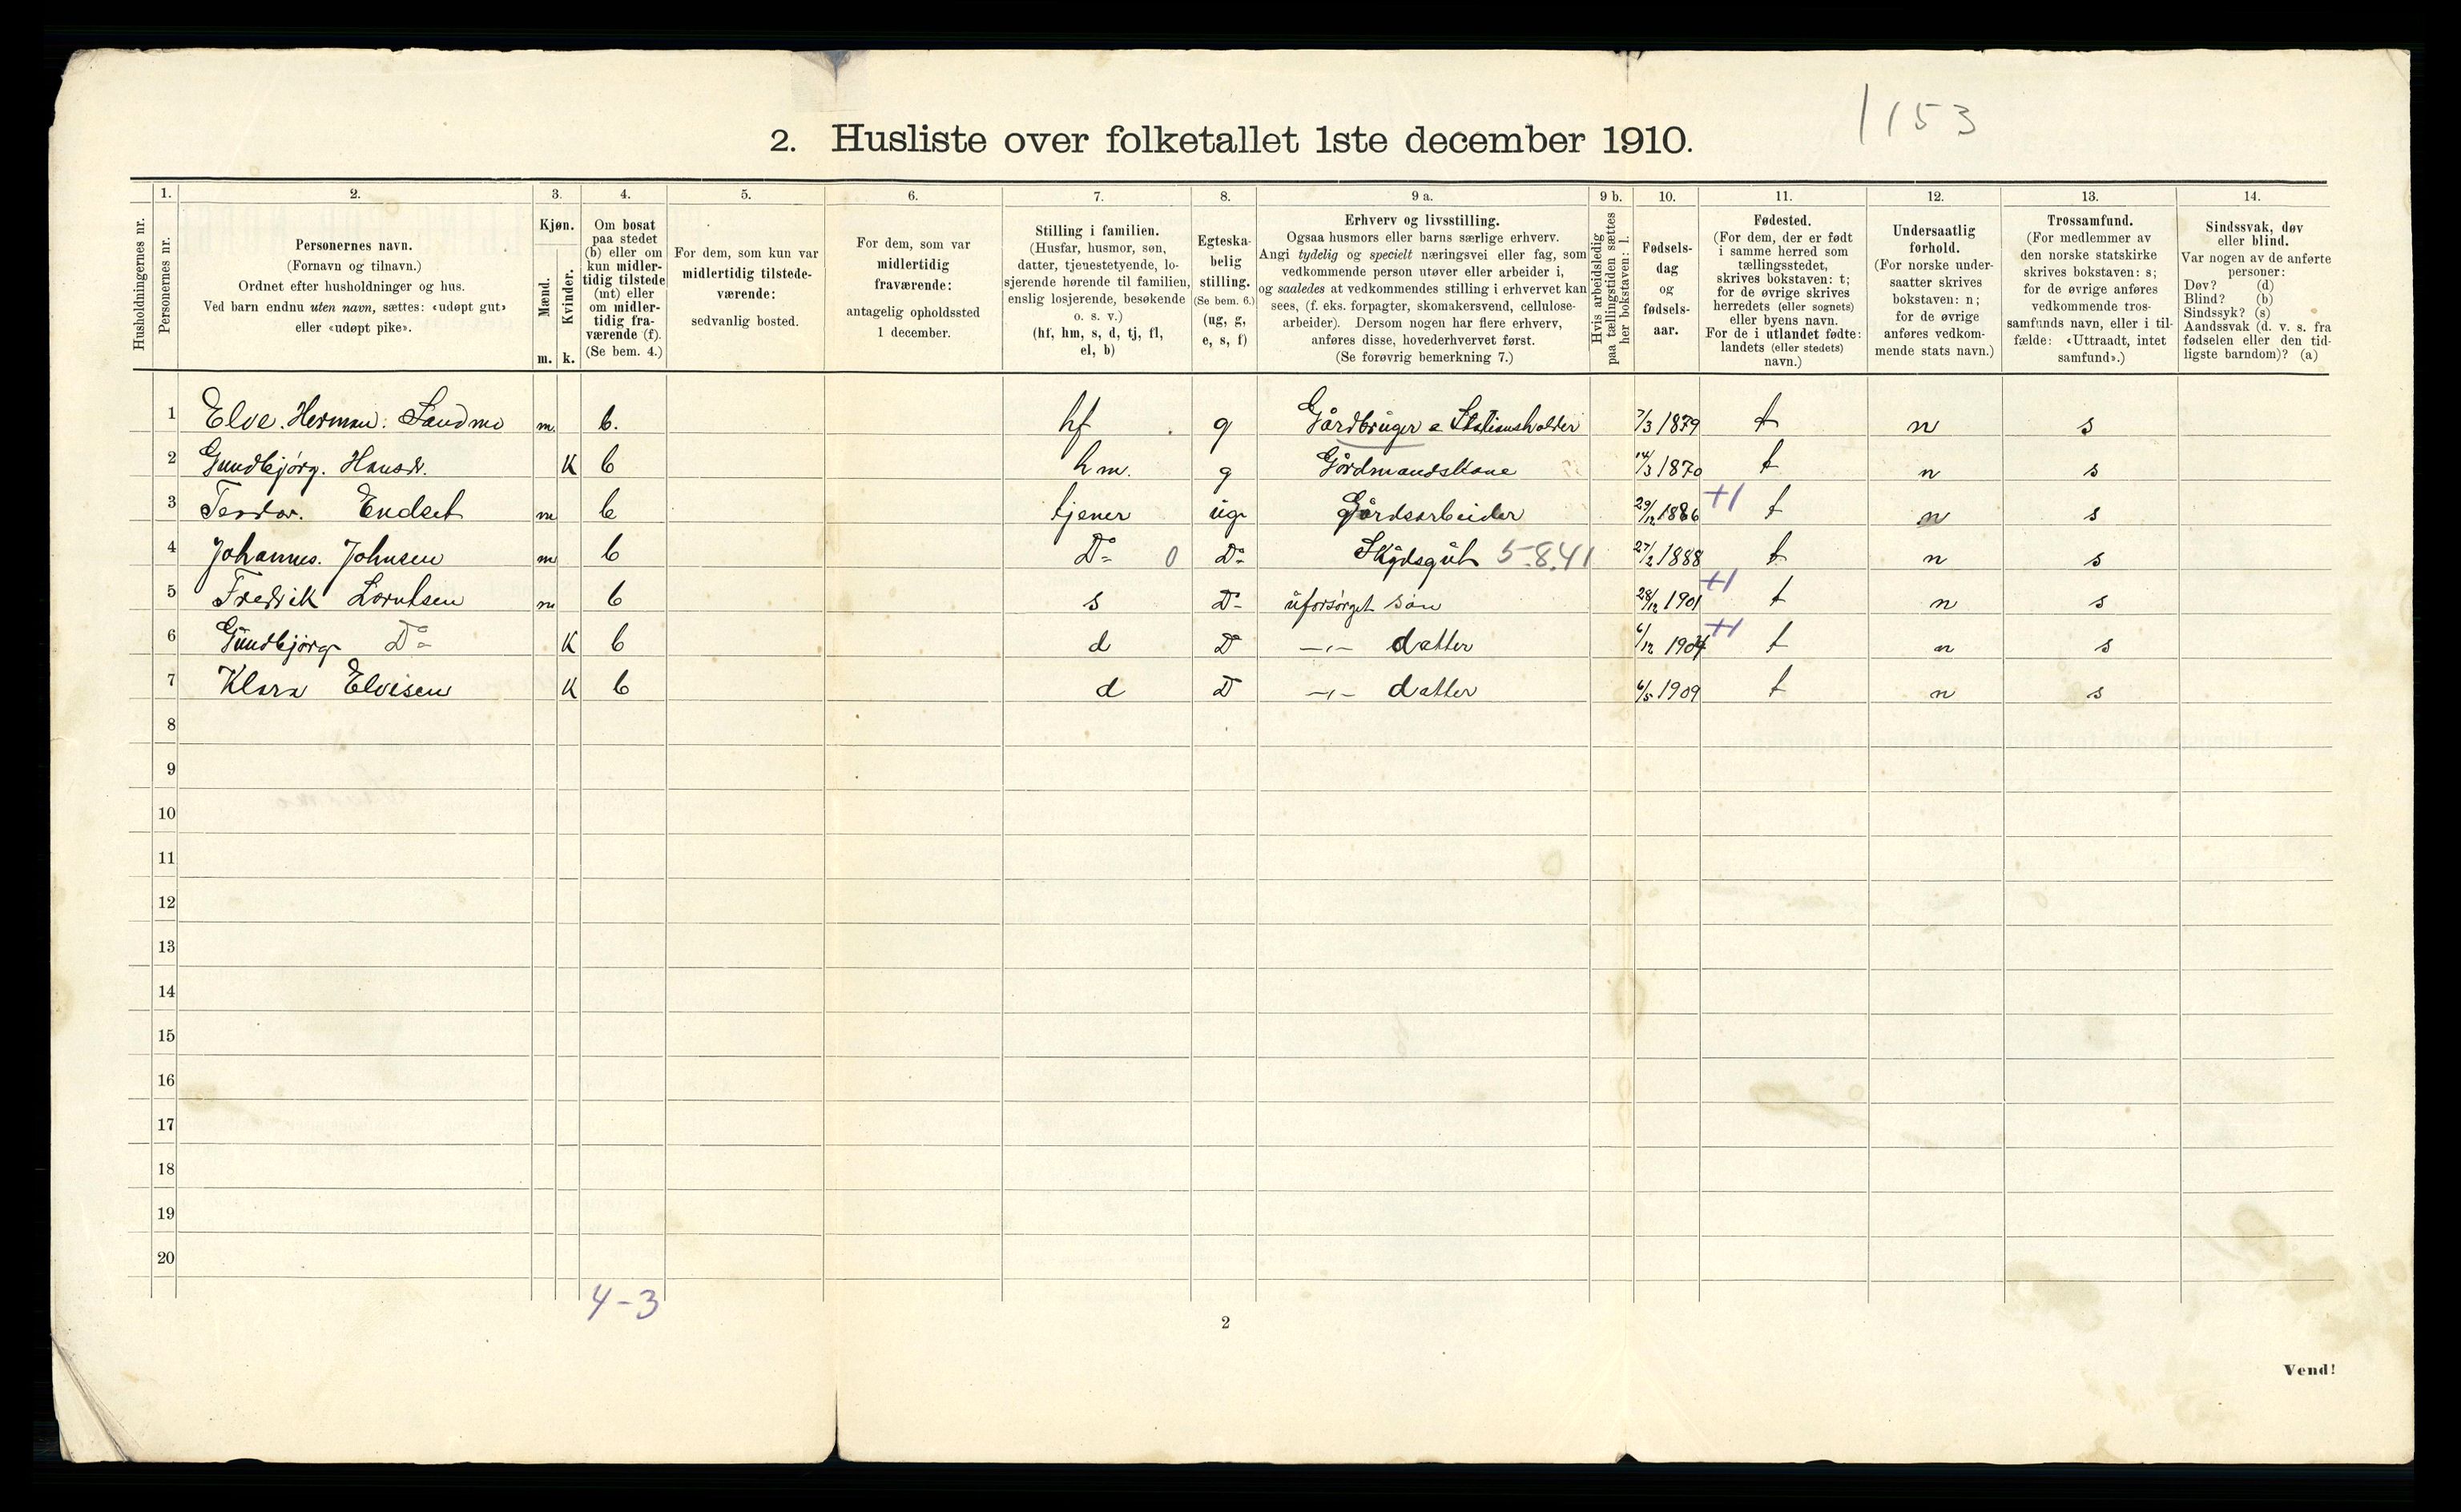 1153
2. Husliste over folketallet 1ste december 1910.
Husholdningernes nr.
1.
Personernes nr.
2.
Personernes navn.
(Fornavn og tilnavn.)
Ordnet efter husholdninger og hus.
Ved barn endnu uten navn, sættes: «udøpt gut»
eller «udøpt pike».
3.
Kjøn.
Mænd.
m.
Kvinder.
k.
4.
Om bosat
paa stedet
(b) eller om
kun midler-
tidig tilstede
(mt) eller
om midler-
tidig fra-
værende (f).
(Se bem. 4.)
5.
For dem, som kun var
midlertidig tilstede-
værende:
sedvanlig bosted.
6.
For dem, som var
midlertidig
fraværende:
antagelig opholdssted
1 december.
7.
Stilling i familien.
(Husfar, husmor, søn,
datter, tjenestetyende, lo-
sjerende hørende til familien,
enslig losjerende, besøkende
o. s. v.)
(hf, hm, s, d, tj, fl,
el, b)
8.
Egteska-
belig
stilling.
(Se bem. 6.)
(ug, g,
e, s, f)
9 a.
Erhverv og livsstilling.
Ogsaa husmors eller barns særlige erhverv.
Angi tydelig og specielt næringsvei eller fag, som
vedkommende person utøver eller arbeider i,
og saaledes at vedkommendes stilling i erhvervet kan
sees, (f. eks. forpagter, skomakersvend, cellulose-
arbeider). Dersom nogen har flere erhverv,
anføres disse, hovederhvervet først.
(Se forøvrig bemerkning 7.)
9 b.
Hvis arbeidsledig
paa tællingstiden sættes
her bokstaven: l.
10.
Fødsels-
dag
og
fødsels-
aar.
11.
Fødested.
(For dem, der er født
i samme herred som
tællingsstedet,
skrives bokstaven: t;
for de øvrige skrives
herredets (eller sognets)
eller byens navn.
For de i utlandet fødte:
landets (eller stedets)
navn.)
12.
Undersaatlig
forhold.
(For norske under-
saatter skrives
bokstaven: n;
for de øvrige
anføres vedkom-
mende stats navn.)
13.
Trossamfund.
(For medlemmer av
den norske statskirke
skrives bokstaven: s;
for de øvrige anføres
vedkommende tros-
samfunds navn, eller i til-
fælde: «Uttraadt, intet
samfund».)
14.
Sindssvak, døv
eller blind.
Var nogen av de anførte
personer:
Døv? (d)
Blind? (b)
Sindssyk? (s)
Aandssvak (d. v. s. fra
fødselen eller den tid-
ligste barndom)? (a)
1 Elve. Herman: Sandmo m. b. hf g Gårdbruger & Stationsholder 7/3 1879 t n s
2 Gundbjørg. Hansdr. K b hm. g Gårdmandskone 14/3 1870 t n s
3 Teodor. Endset m b tjener ug Gårdsarbeider 29/12 1886 t n s
4 Johannes. Johnsen m b Do 0 Do Skydsgut 5.8.41 27/2 1888 t n s
5 Fredrik Lorntsen m b s Do uforsørget søn 28/12 1901 t n s
6 Gundbjørg Do K b d Do -"- datter 6/12 1904 t n s
7 Klara Elvesen K b d Do -"- datter 6/5 1909 t n s
8
9
10
11
12
13
14
15
16
17
18
19
20
4-3
2
Vend!